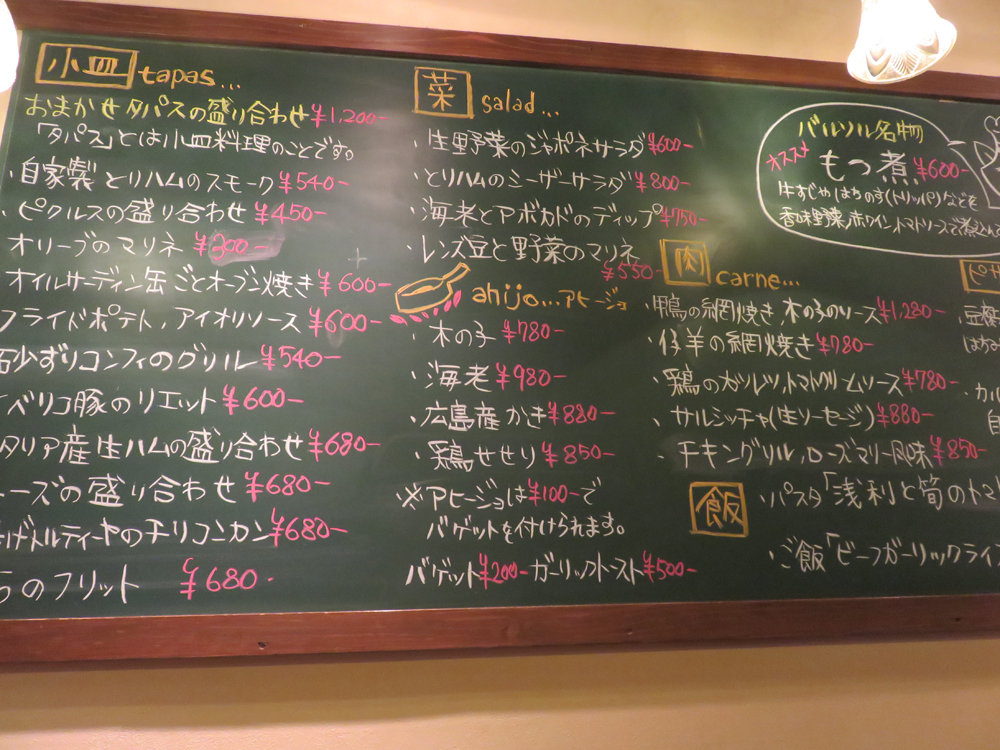 小皿 tapas...
おまかせタパスの盛り合わせ ¥1,200-
「タパス」とは小皿料理のことです。
自家製 とりハムのスモーク ¥540-
・ピクルスの盛り合わせ ¥450-
オリーブのマリネ ¥300-
オイルサーディン缶ごとオーブン焼き ¥600-
フライドポテト,アイオリソース ¥600-
砂ずりコンフィのグリル ¥540-
ベリコ豚のリエット ¥600-
タリア産生ハムの盛り合わせ ¥680-
ーズの盛り合わせ ¥680-
げトルティーヤのチリコンカン ¥680-
のフリット ¥680-
菜 salad...
・生野菜のジャポネサラダ ¥600-
・とりハムのシーザーサラダ ¥800-
・海老とアボカドのディップ ¥750-
・レンズ豆と野菜のマリネ
¥550-
ahijo...アヒージョ
・木の子 ¥780-
・海老 ¥980-
・広島産かき ¥880-
・鶏せせり ¥850-
※アヒージョは¥100-で
バゲットを付けられます。
バゲット ¥200- ガーリックトースト ¥500-
バルソル名物
オススメ もつ煮 ¥600-
牛すじやはちのす(トリッパ)などを
香味野菜,ホワイン,トマトソースで煮込んで
肉 carne...
・鴨の網焼き 木の子のソース ¥1,280-
・仔羊の網焼き ¥780-
・鶏のカツレツ,トマトクリームソース ¥780-
・サルシッチャ(生ソーセージ) ¥880-
・チキングリル,ローズマリー風味 ¥850-
飯
・パスタ「浅利と筍のトマ
・ご飯「ビーフガーリックライ
ピザ
・豆腐
はちみ
・カル
自